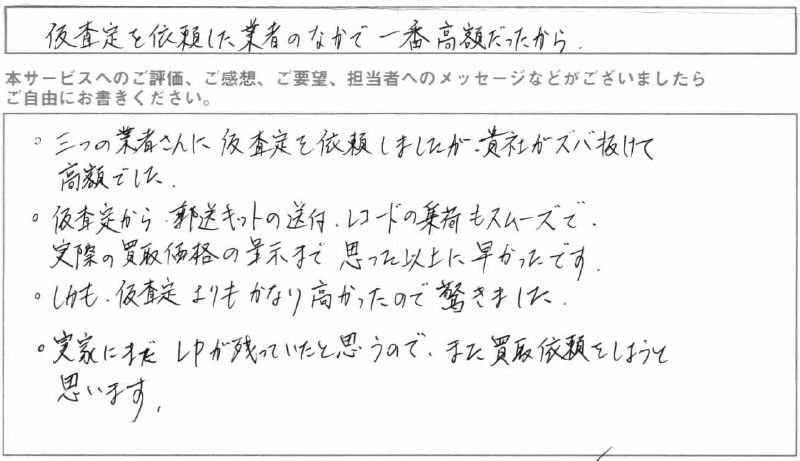 仮査定を依頼した業者のなかで一番高額だったから.
本サービスへのご評価、ご感想、ご要望、担当者へのメッセージなどがございましたら
ご自由にお書きください。
○ 三つの業者さんに仮査定を依頼しましたが、貴社がズバ抜けて
高額でした.
○ 仮査定から、郵送キットの送付、レコードの集荷もスムーズで、
実際の買取価格の呈示まで思った以上に早かったです.
○ しかも、仮査定よりもかなり高かったので驚きました.
○ 実家にまだLPが残っていたと思うので、また買取依頼をしようと
思います.